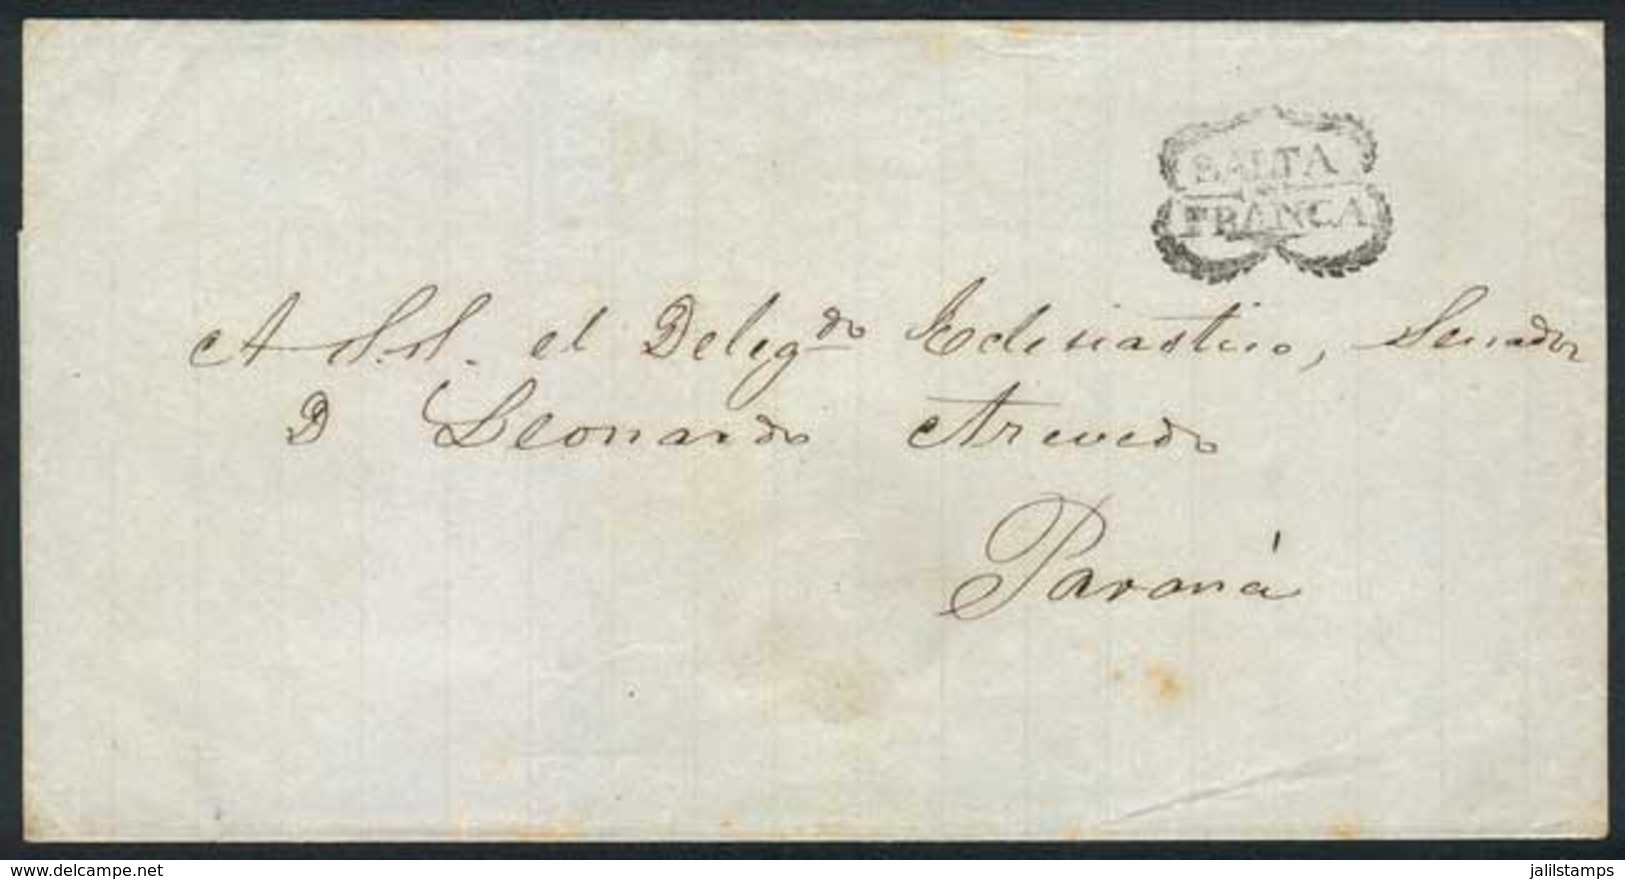 SALTA
FRANCA
A S.S. el Deleg.do Eclesiastico, Senador
D Leonardo Acevedo
Paraná
delcampe.net
jalilstamps